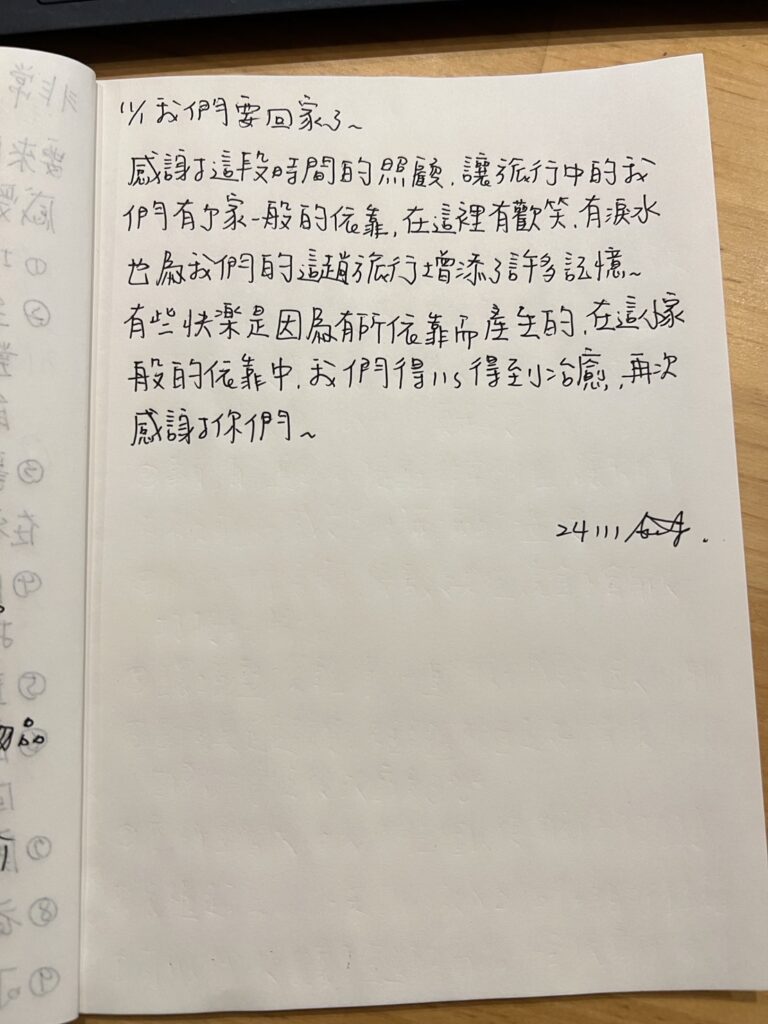 11/1 我們要回家了~
感謝這段時間的照顧,讓旅行中的我
們有了家一般的依靠,在這裡有歡笑、有淚水
也為我們的這趟旅行增添了許多記憶~
有些快樂是因為有所依靠而產生的,在這個家
般的依靠中,我們得以得到治癒,再次
感謝你們~
24 111
①
②
③
在
④
⑤
⑦
⑧
⑨